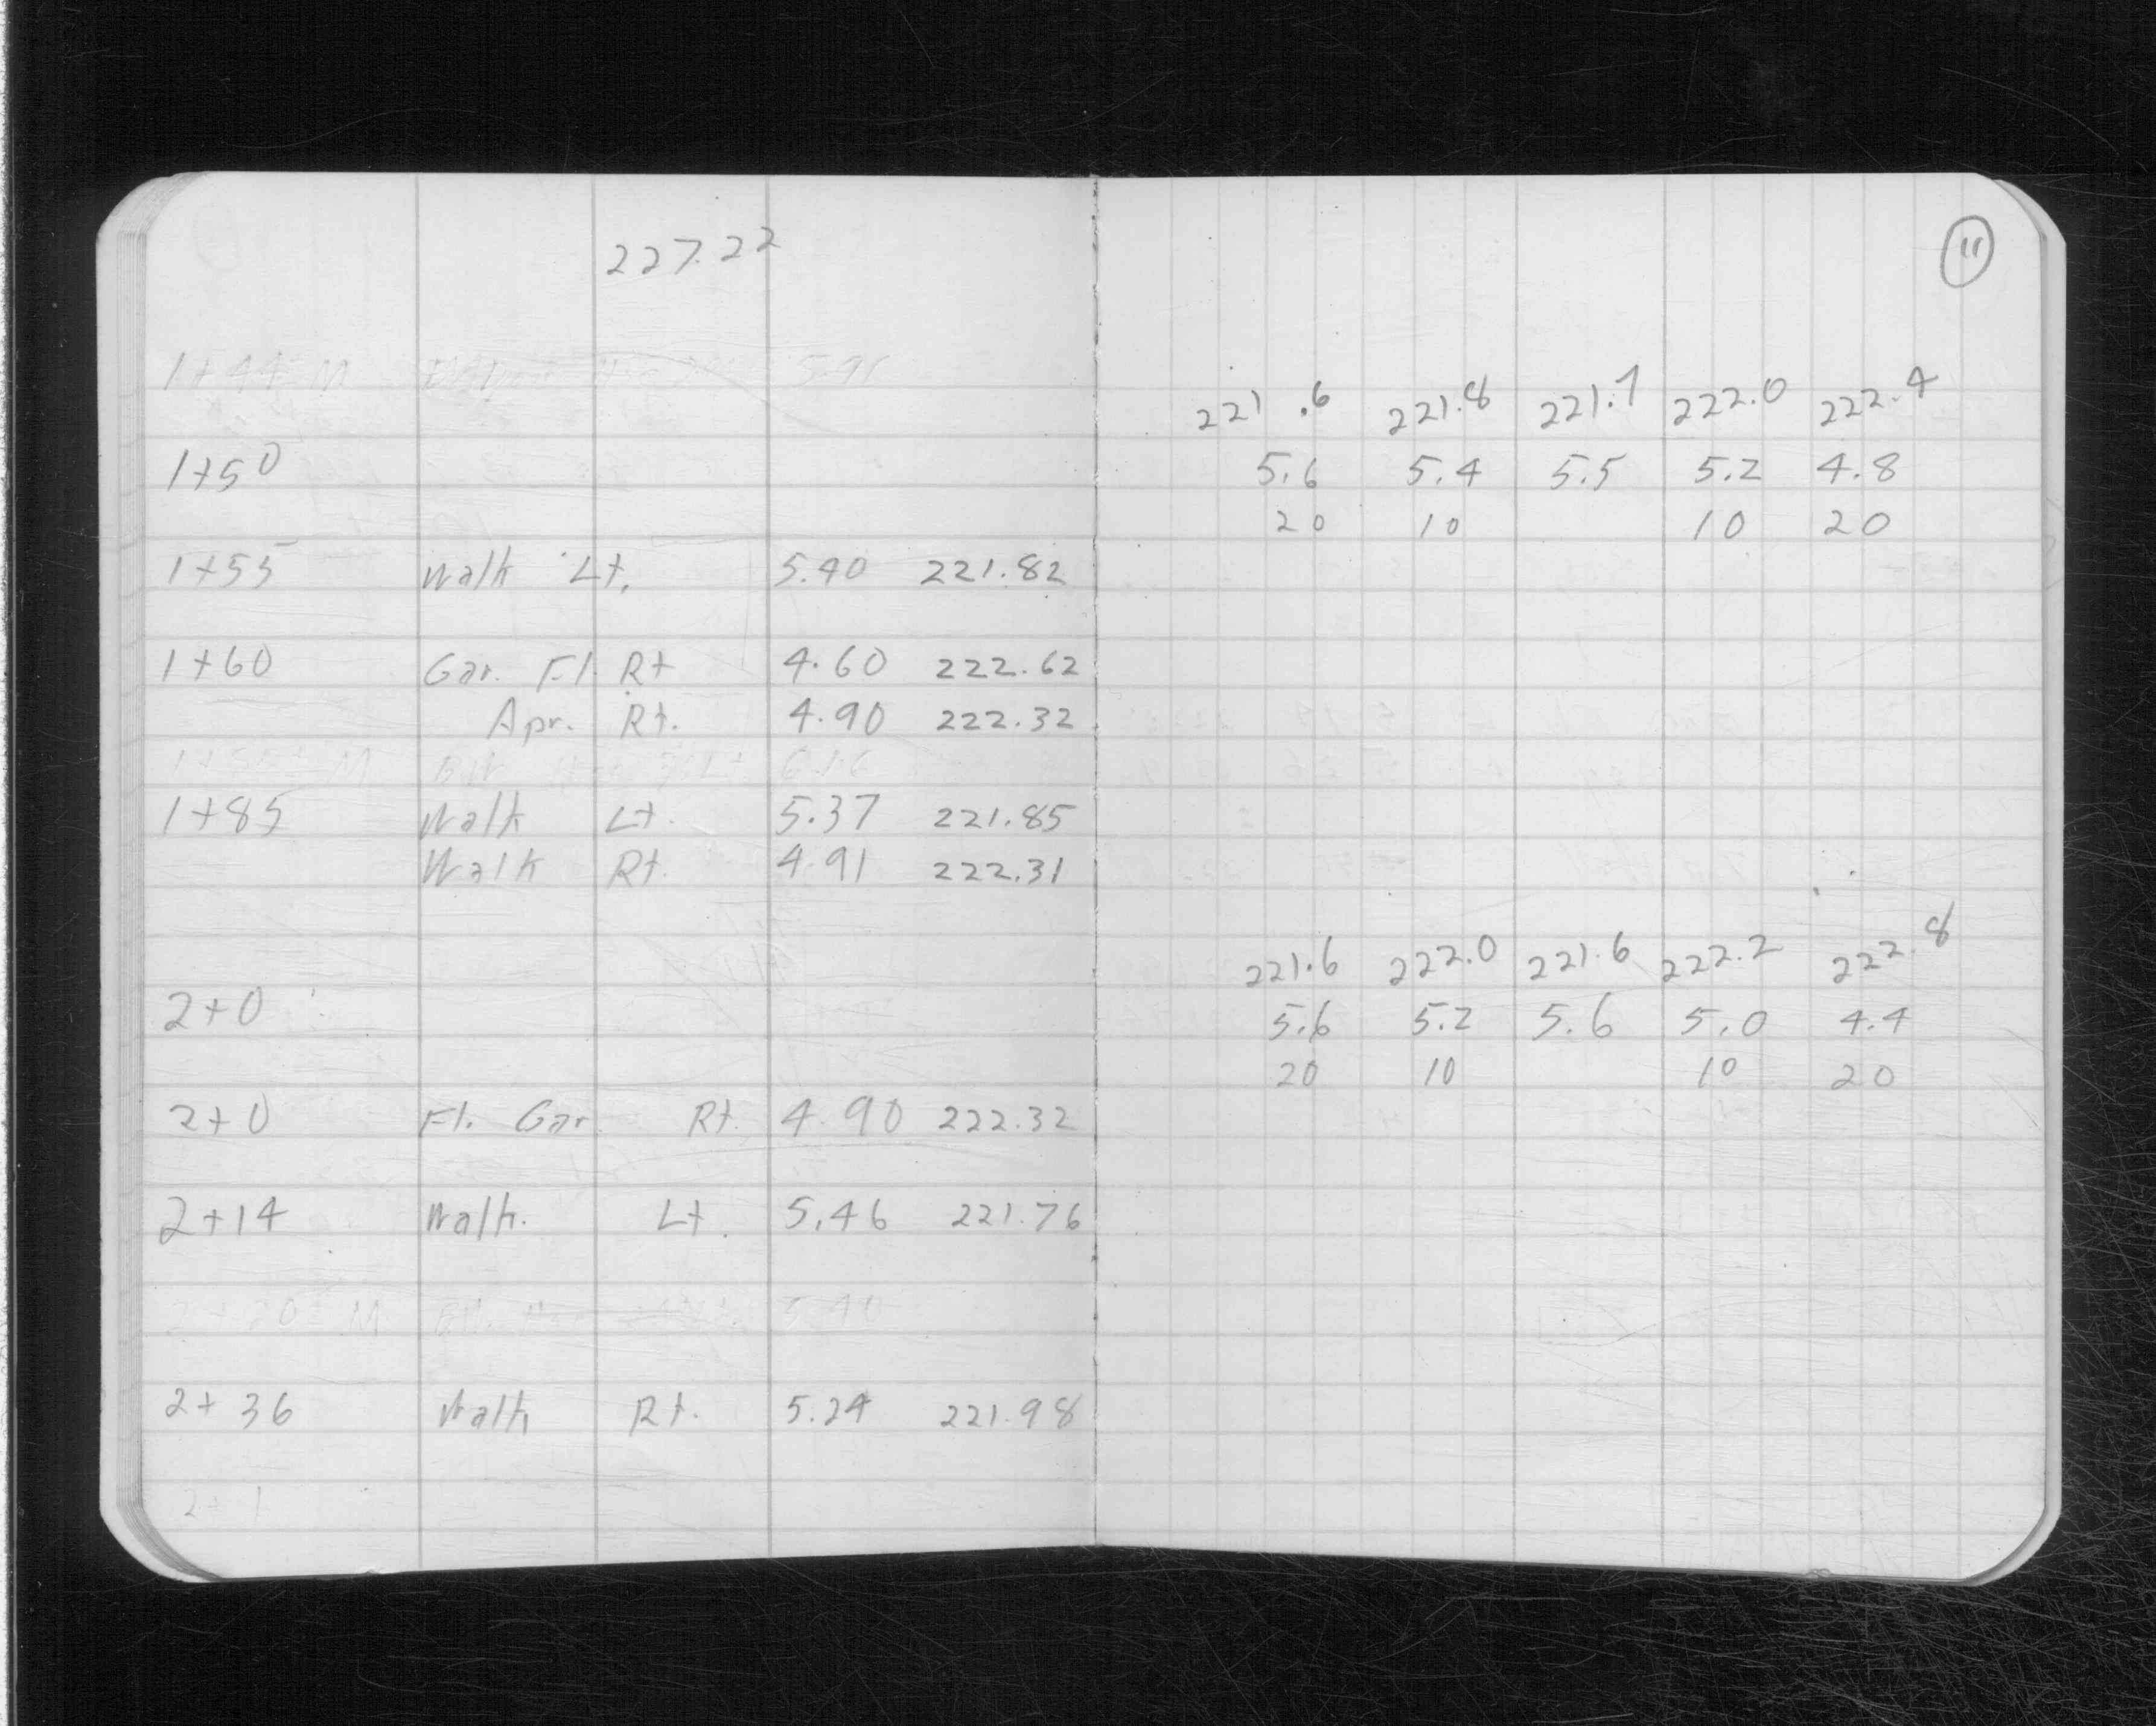 227.22
1+50
1+55 Walk Lt. 5.40 221.82
1+60 Gar. Fl. Rt 4.60 222.62
Apr. Rt. 4.90 222.32
1+85 Walk Lt. 5.37 221.85
Walk Rt. 4.91 222.31
2+0
2+0 Fl. Gar. Rt. 4.90 222.32
2+14 Walk. Lt. 5.46 221.76
2+36 Walk Rt. 5.24 221.98
11
221.6 221.8 221.7 222.0 222.4
5.6 5.4 5.5 5.2 4.8
20 10 10 20
221.6 222.0 221.6 222.2 222.8
5.6 5.2 5.6 5.0 4.4
20 10 10 20